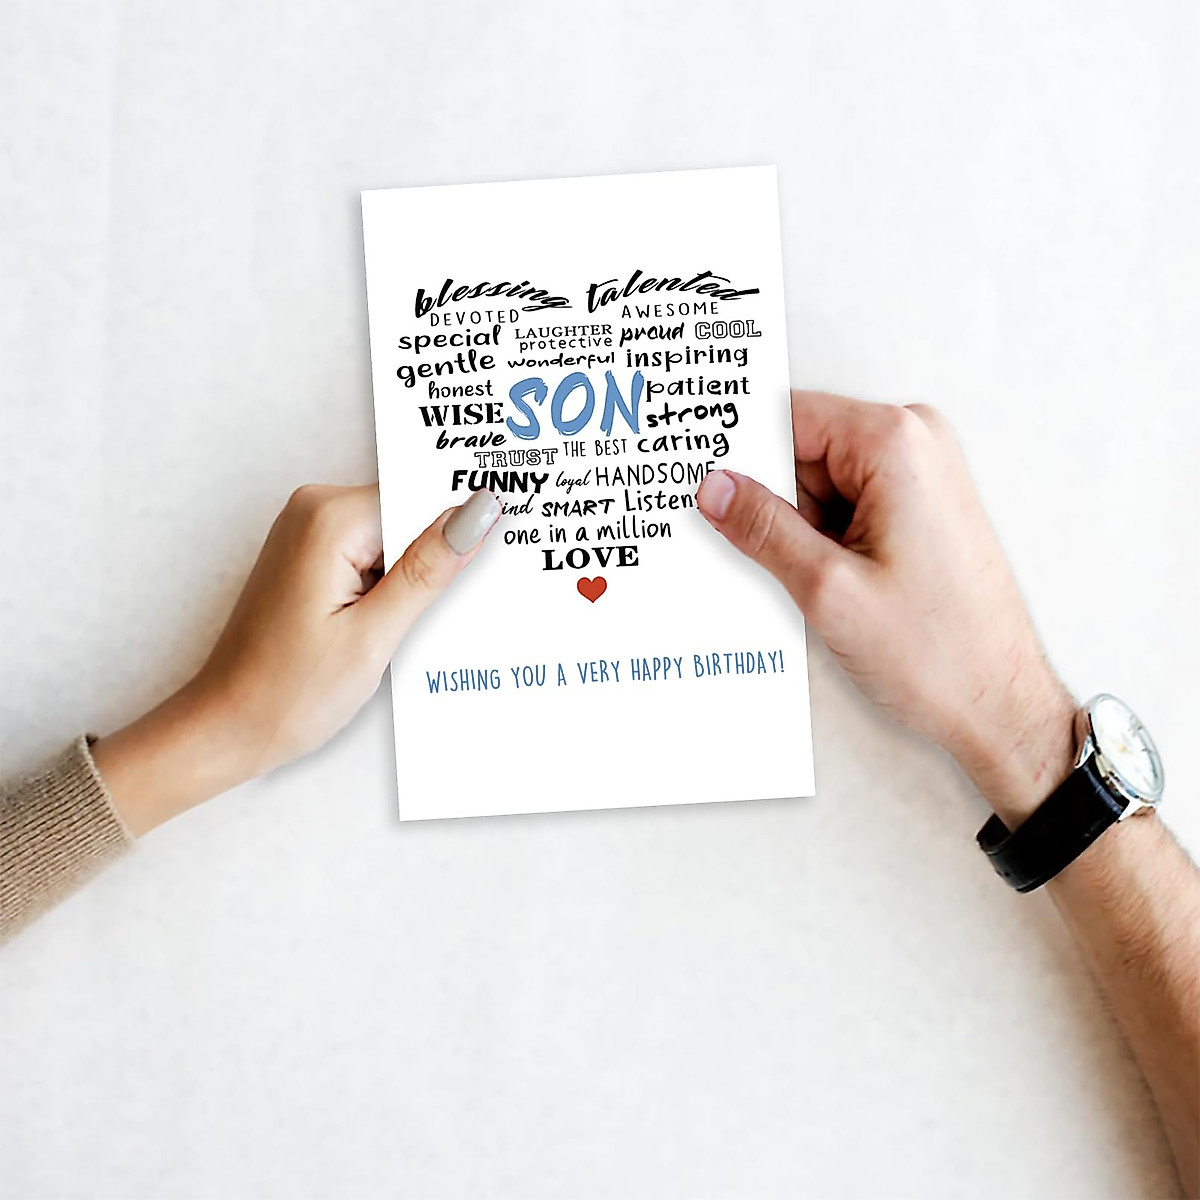 blessing talented
DEVOTED AWESOME
special LAUGHTER proud COOL
protective
gentle wonderful inspiring
honest SON patient
WISE strong
brave THE BEST caring
TRUST
FUNNY loyal HANDSOME
ind SMART Listens
one in a million
LOVE
WISHING YOU A VERY HAPPY BIRTHDAY!